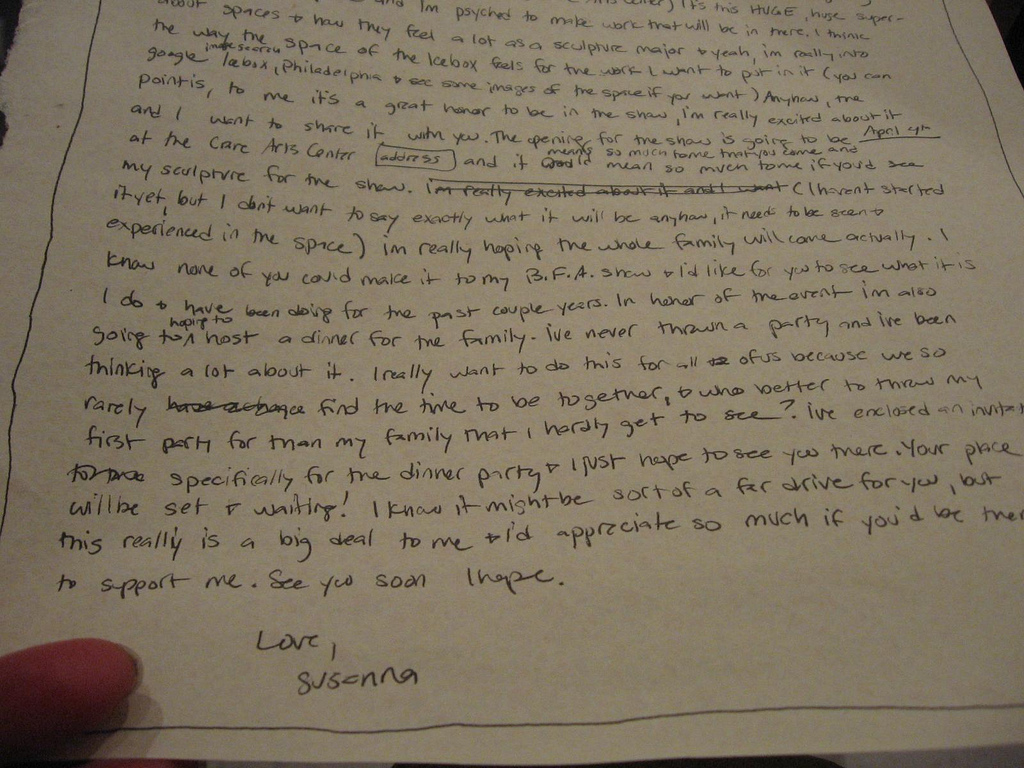 and I'm psyched to make work that will be in there. I think
about spaces & how they feel a lot as a sculpture major & yeah, im really into
the way the space of the Icebox feels for the work I want to put in it (you can
google image search Icebox, Philadelphia & see some images of the space if you want) Anyhow, the
point is, to me it's a great honor to be in the show, i'm really excited about it
and I want to share it with you. The opening for the show is going to be April 9th
at the Care Arts Center address and it means so much to me that you come and would mean so much to me if you'd see
my sculpture for the show. i'm really excited about it and I want (I havent started
it yet, but I don't want to say exactly what it will be anyhow, it needs to be seen &
experienced in the space) im really hoping the whole family will come actually. I
know none of you could make it to my B.F.A. show & I'd like for you to see what it is
I do & have been doing for the past couple years. In honor of the event im also
going to hoping to host a dinner for the family. ive never thrown a party and ive been
thinking a lot about it. I really want to do this for all of us because we so
rarely have a chance find the time to be together, & who better to throw my
first party for than my family that I hardly get to see? Ive enclosed an invite
specifically for the dinner party & I just hope to see you there. Your place
will be set & waiting! I know it might be sort of a far drive for you, but
this really is a big deal to me & I'd appreciate so much if you'd be there
to support me. See you soon I hope.
Love,
Susanna